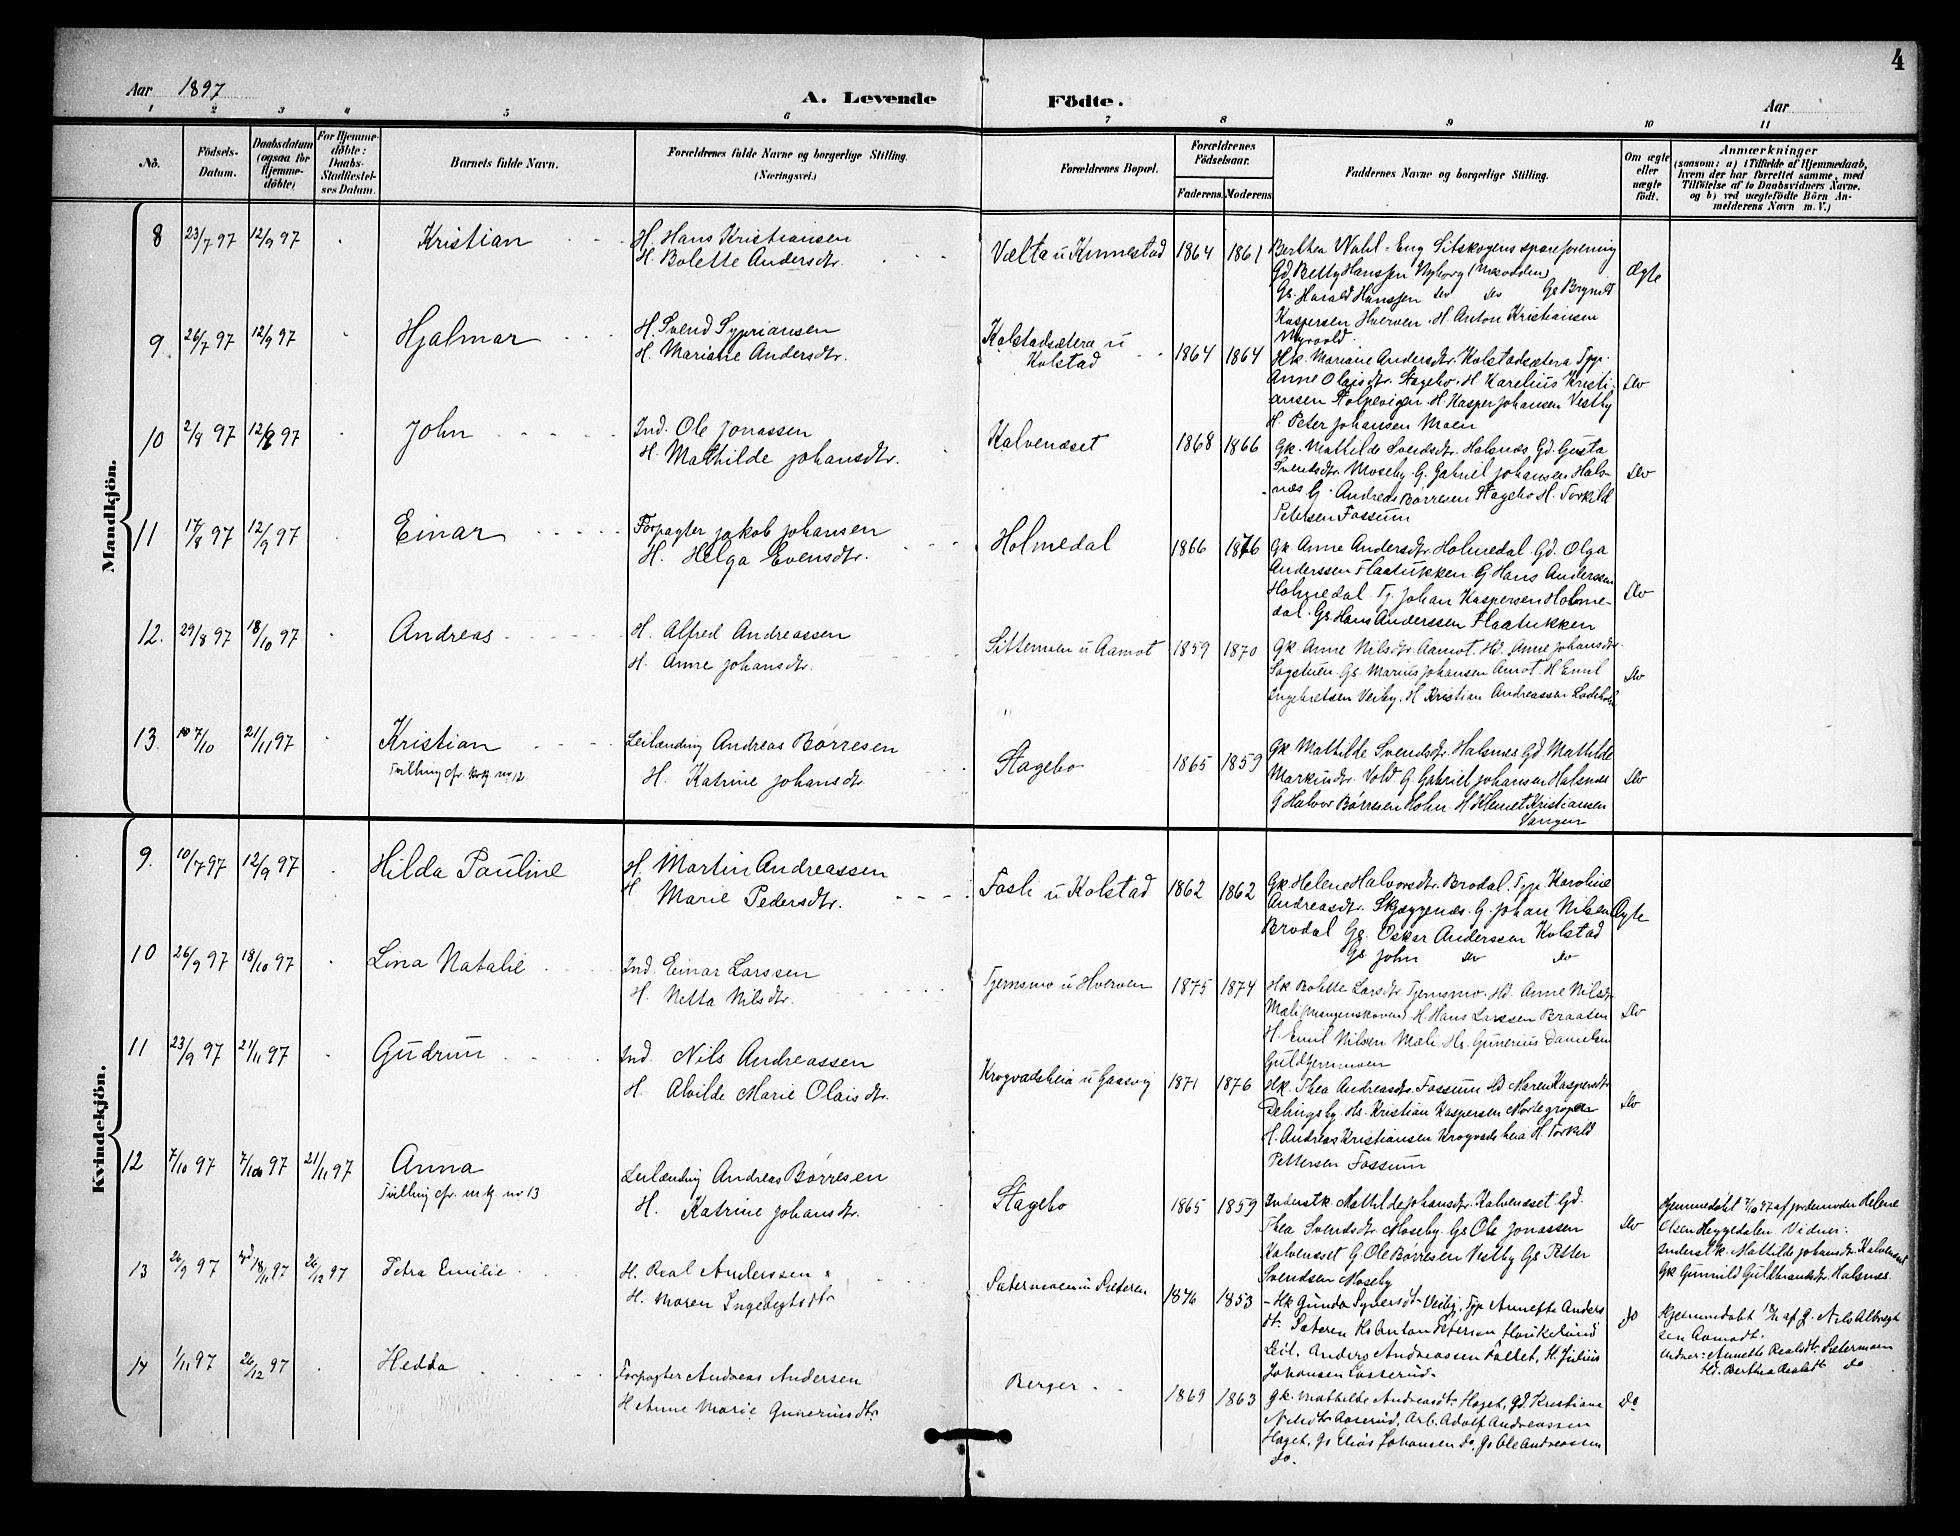 4
Aar 1897
A. Levende Födte.
Aar
1 2 3 4 5 6 7 8 9 10 11
No.
Födsels-Datum.
Daabsdatum (ogsaa for Hjemme-döbte)
For Hjemme-döbte: Daabs-Stadfæstel-ses Datum.
Barnets fulde Navn.
Forældrenes fulde Navne og borgerlige Stilling.
(Næringsvei.)
Forældrenes Bopæl.
Forældrenes Födselsaar.
Faderens. Moderens
Faddernes Navne og borgerlige Stilling.
Om ægte eller uægte födt.
Anmærkninger
(saasom: a) i Tilfælde af Hjemmedaab,
hvem der har forrettet samme, med
Tilföielse af to Daabsvidners Navne,
og b) ved uægtefödte Börn An-
melderens Navn m. V.)
Mandkjön.
8 23/7 97 12/9 97 Kristian
H. Hans Kristiansen
H. Bolette Andersdtr.
Vælta u Kinnestad 1864 1861
Berthea Wahl - Eng Sitskogens spareforening
Gd Betty Hanssen Nyborg (Næsodden)
Gs. Harald Hanssen do do Gs Bryndt
Kaspersen Hverven. H Anton Kristiansen
Myrvold.
Ægte
9. 26/7 97 12/9 97 Hjalmar
H. Svend Sypriansen
H. Mariane Andersdtr.
Kolstadsætera u
Kolstad
1864 1864
Hk. Mariane Andersdtr. Kolstadsætera Tpge.
Anne Olaisdtr. Stagebo. H Karelius Kristi-
ansen Stolpeviger. H. Kasper Johansen Vestby
H. Peter Johansen Moen
do
10 2/8 97 12/9 97 John
Ind. Ole Jonassen
H. Mathilde Johansdtr.
Kalvenæset 1868 1866
Gk. Mathilde Svendsdtr. Halsnæs Gd. Gusta
Svendsdtr. Moseby. G. Gabriel Johansen Hals-
næs G. Andreas Børresen Stagebo H. Torkild
Petersen Fossum
do
11 17/8 97 12/9 97 Einar
Forpagter Jakob Johansen
H. Helga Evensdtr.
Holmedal 1866 1876
Gk. Anne Andersdtr. Holmedal. Gd. Olga
Anderssen Flaatukken. G. Hans Anderssen
Holmedal. Tj. Johan Kaspersen Holme-
dal. Gs. Hans Anderssen Flaatukken
do
12. 29/8 97 18/10 97 Andreas
H. Alfred Andreassen
H. Anne Johansdtr.
Sittemoen u Aamot 1859 1870
Gk. Anne Nilsdtr. Aamot. Hd. Anne Johansdtr.
Sagstuen. Gs. Marius Johansen Amot. H. Emil
Ingebretsen Veiby. H. Kristian Andreassen
do
13. 7/10 21/11 97 Kristian
Tvilling cfr. kvkj no 12
Leilænding Andreas Børresen
H. Katrine Johansdtr
Stagebo 1865 1859
Gk. Mathilde Svendsdtr. Halsnæs Gd. Mathilde
Markusdtr. Vold G. Gabriel Johansen Halsnæs
G Halvor Børresen Holm. H Klemet Kristiansen
Vangen
do
Kvindekjön.
9. 10/7 97 12/9 97 Hilda Pauline
H. Martin Andreassen
H Marie Pedersdtr.
Fosh u Kolstad 1862 1862
Gk. Helene Halvorsdtr. Brodal. Tpge Karoline
Andreasdtr. Skjæggenæs. G. Johan Nilsen
Brodal Gs. Oskar Anderssen Kolstad
Gs. John do do
Ægte
10 26/9 97 18/10 97 Lina Natalie
Ind. Einar Larssen
H. Netta Nilsdtr.
Tjernsmo u Hverven 1875 1874
Hk Bolette Larsdtr Tjernsmo. Hd. Anne Nilsdtr.
Mæli (Mangenskoven) H. Hans Larssen Braaten
H. Emil Nilsen Mæli. Hs. Gunerius Danielsen
Guldtjernmoen
do
11 23/9 97 21/11 97 Gudrun
Ind. Nils Andreassen
H. Alvilde Marie Olaisdtr.
Krogvadsheia u Gaasvig 1871 1876
Hk. Thea Andreasdtr. Fossum Hd Maren Kaspersdtr
Delingsby. Hs. Kristian Kaspersen
H. Andreas Kristiansen Krogvadsheia H. Torkild
Pettersen Fossum
do
12 7/10 97 7/10 97 21/11 97 Anna
Tvilling cfr. mkj. no 13
Leilænding Andreas Børresen
H. Katrine Johansdtr.
Stagebo 1865 1859
Inderstk. Mathilde Johansdtr. Kalvenæset Gd.
Thea Svendsdtr. Moseby. Gs Ole Jonassen
Kalvenæset G. Ole Børresen Vestby Gs. Petter
Svendsen Moseby
do
Hjemmedøbt 7/10 97 af jordemoder Helene
Olsen Heggedalen Vidner:
Inderstk. Mathilde Johansdtr. Kalvenæset
Gk Gunnild Guldbrandsdtr. Halsnæs.
13 26/9 97 18/11 97 26/12 97 Petra Emilie
H. Real Anderssen
H. Maren Ingebrigtsdtr
Sætermoen u Sæteren 1846 1853
- Hk Gunda Syversdtr Veiby, Tpge Annette Anders
dtr. Sæteren H. Anton Petersen
Leil. Anders Andreassen Tallet, H. Julius
Johansen Losserud.
do
Hjemmedøbt 18/11 af G. Nils Albregt
sen Aamodt.
Vidner: Annette Realsdtr. Sætermoen
Hd. Berthea Realsdtr. do
14 1/11 97 26/12 97 Hedda
Forpagter Andreas Andersen
H Anne Marie Gunerusdtr.
Berger 1869 1863
Gk. Mathilde Andreasdtr. Haget, Gd. Kristiane
Nilsdtr Aaserud, Arb. Adolf Andreassen
Haget, Gs Elias Johansen do, Gs Ole Andreassen
do.
Do